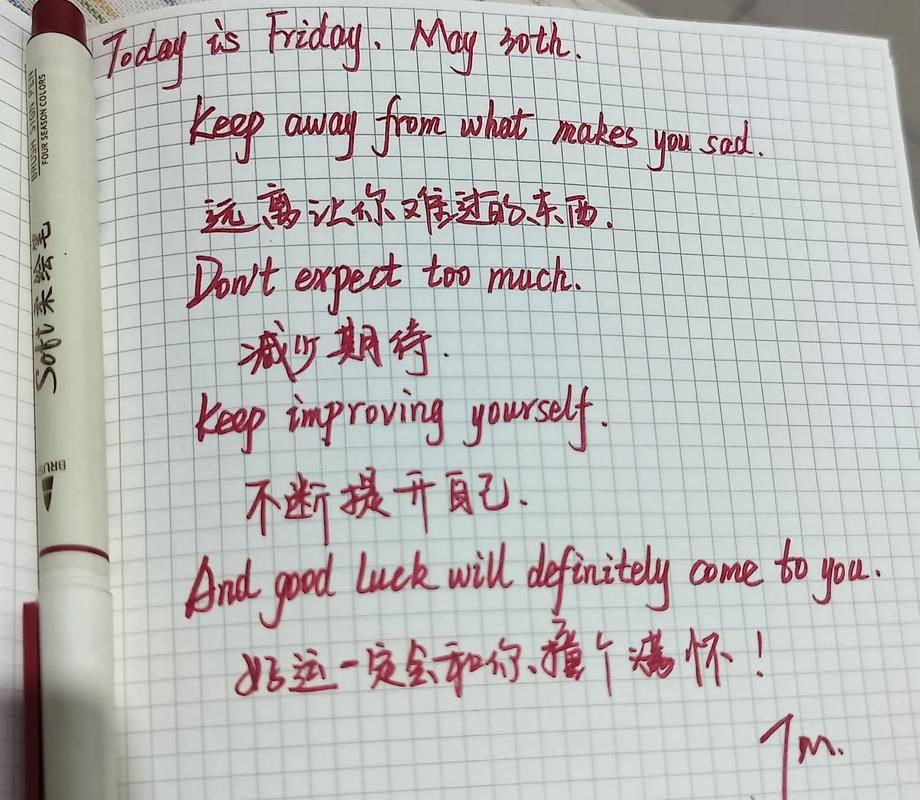 Today is Friday. May 30th.
Keep away from what makes you sad.
远离让你难过的东西.
Don't expect too much.
减少期待.
Keep improving yourself.
不断提升自己.
And good luck will definitely come to you.
好运一定会和你撞个满怀!
BRUSH SIGN PEN
FOUR SEASON COLORS
Soft 柔绘笔
BRUSH